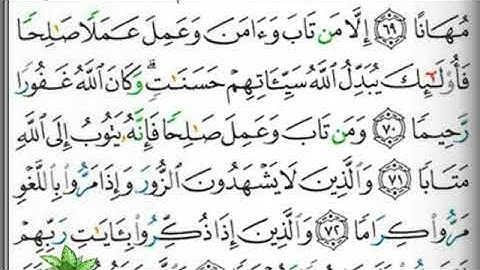 مُهَانًا ٦٩ إِلَّا مَن تَابَ وَءَامَنَ وَعَمِلَ عَمَلًا صَٰلِحًا
فَأُو۟لَٰٓئِكَ يُبَدِّلُ ٱللَّهُ سَيِّـَٔاتِهِمْ حَسَنَٰتٍ ۗ وَكَانَ ٱللَّهُ غَفُورًا
رَّحِيمًا ٧٠ وَمَن تَابَ وَعَمِلَ صَٰلِحًا فَإِنَّهُۥ يَتُوبُ إِلَى ٱللَّهِ
مَتَابًا ٧١ وَٱلَّذِينَ لَا يَشْهَدُونَ ٱلزُّورَ وَإِذَا مَرُّوا۟ بِٱللَّغْوِ
مَرُّوا۟ كِرَامًا ٧٢ وَٱلَّذِينَ إِذَا ذُكِّرُوا۟ بِـَٔايَٰتِ رَبِّهِمْ